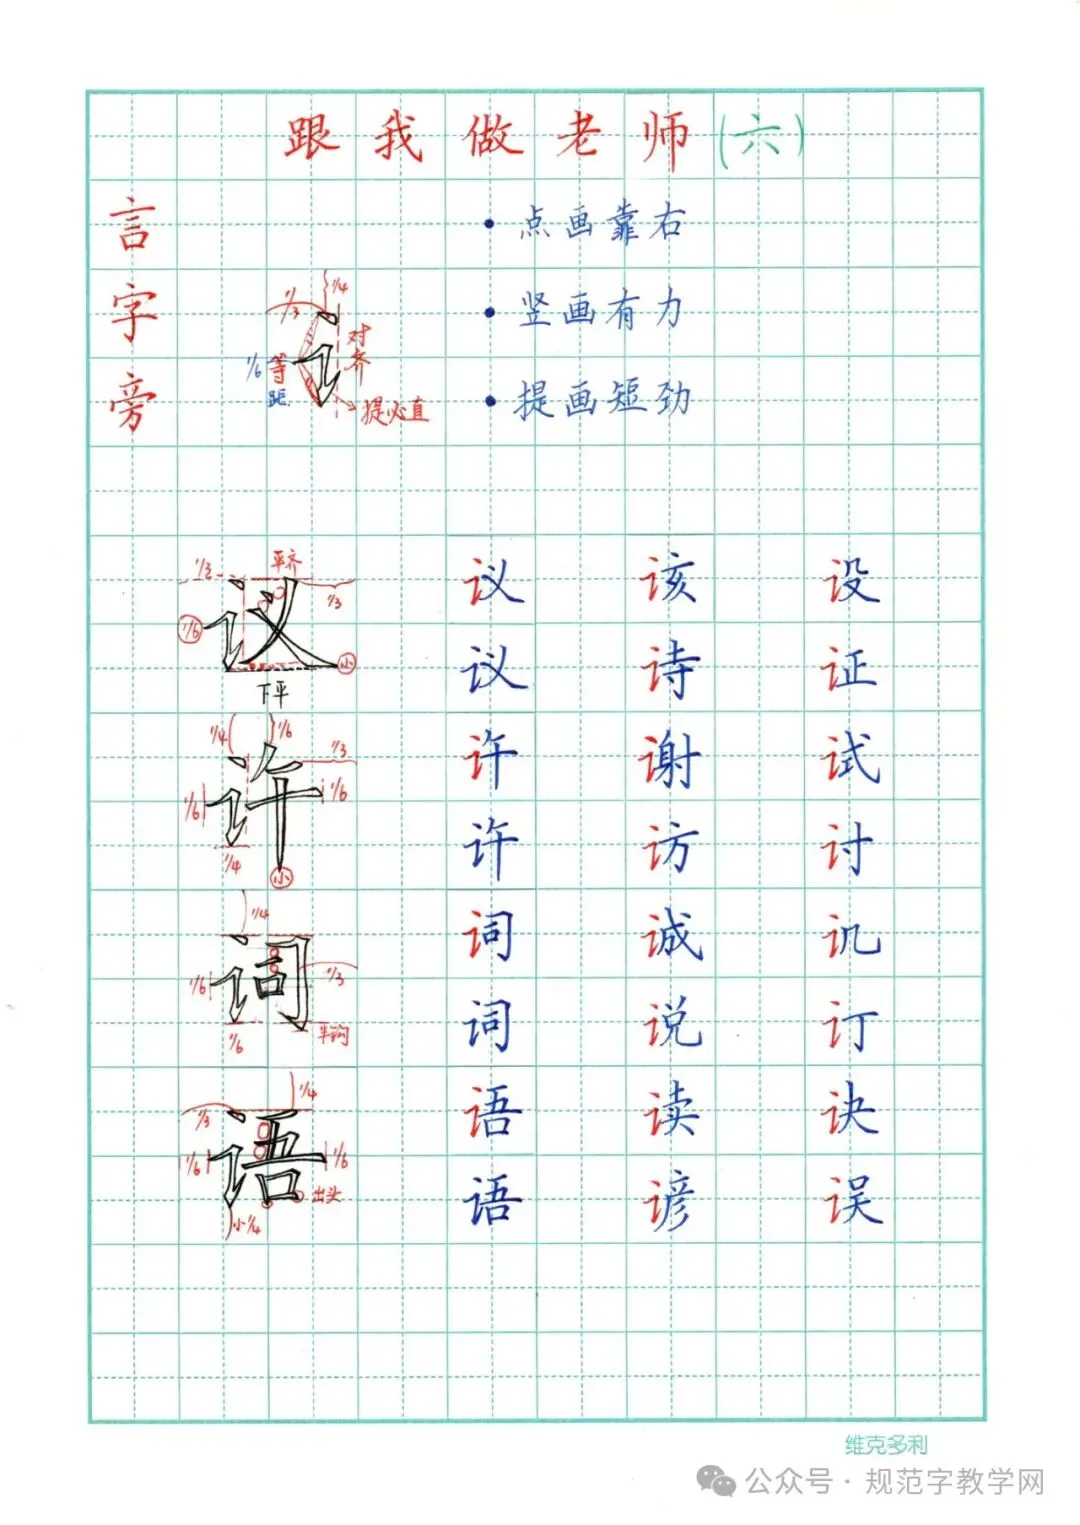 跟我做老师(六)
言字旁
1/3 1/4
对齐
1/6 等距
提必直
• 点画靠右
• 竖画有力
• 提画短劲
1/3 平齐 1/3
1/6 议 小
下平
议 该 设
议 诗 证
1/4 1/6 1/3
1/6 许 1/6
1/4 小
许 谢 试
许 访 讨
1/4
1/6 词 1/3
1/6 半钩
词 诚 讥
词 说 订
1/3 1/4
1/6 语 1/6
小1/4 出头
语 读 诀
语 谚 误
维克多利
公众号·规范字教学网